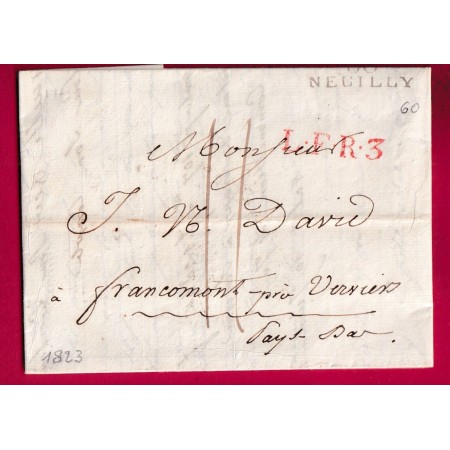 60
NEUILLY
60
L.F.R.3
Monsieur
J. N. David
à francomont près Verviers
Pays-Bas.
1823